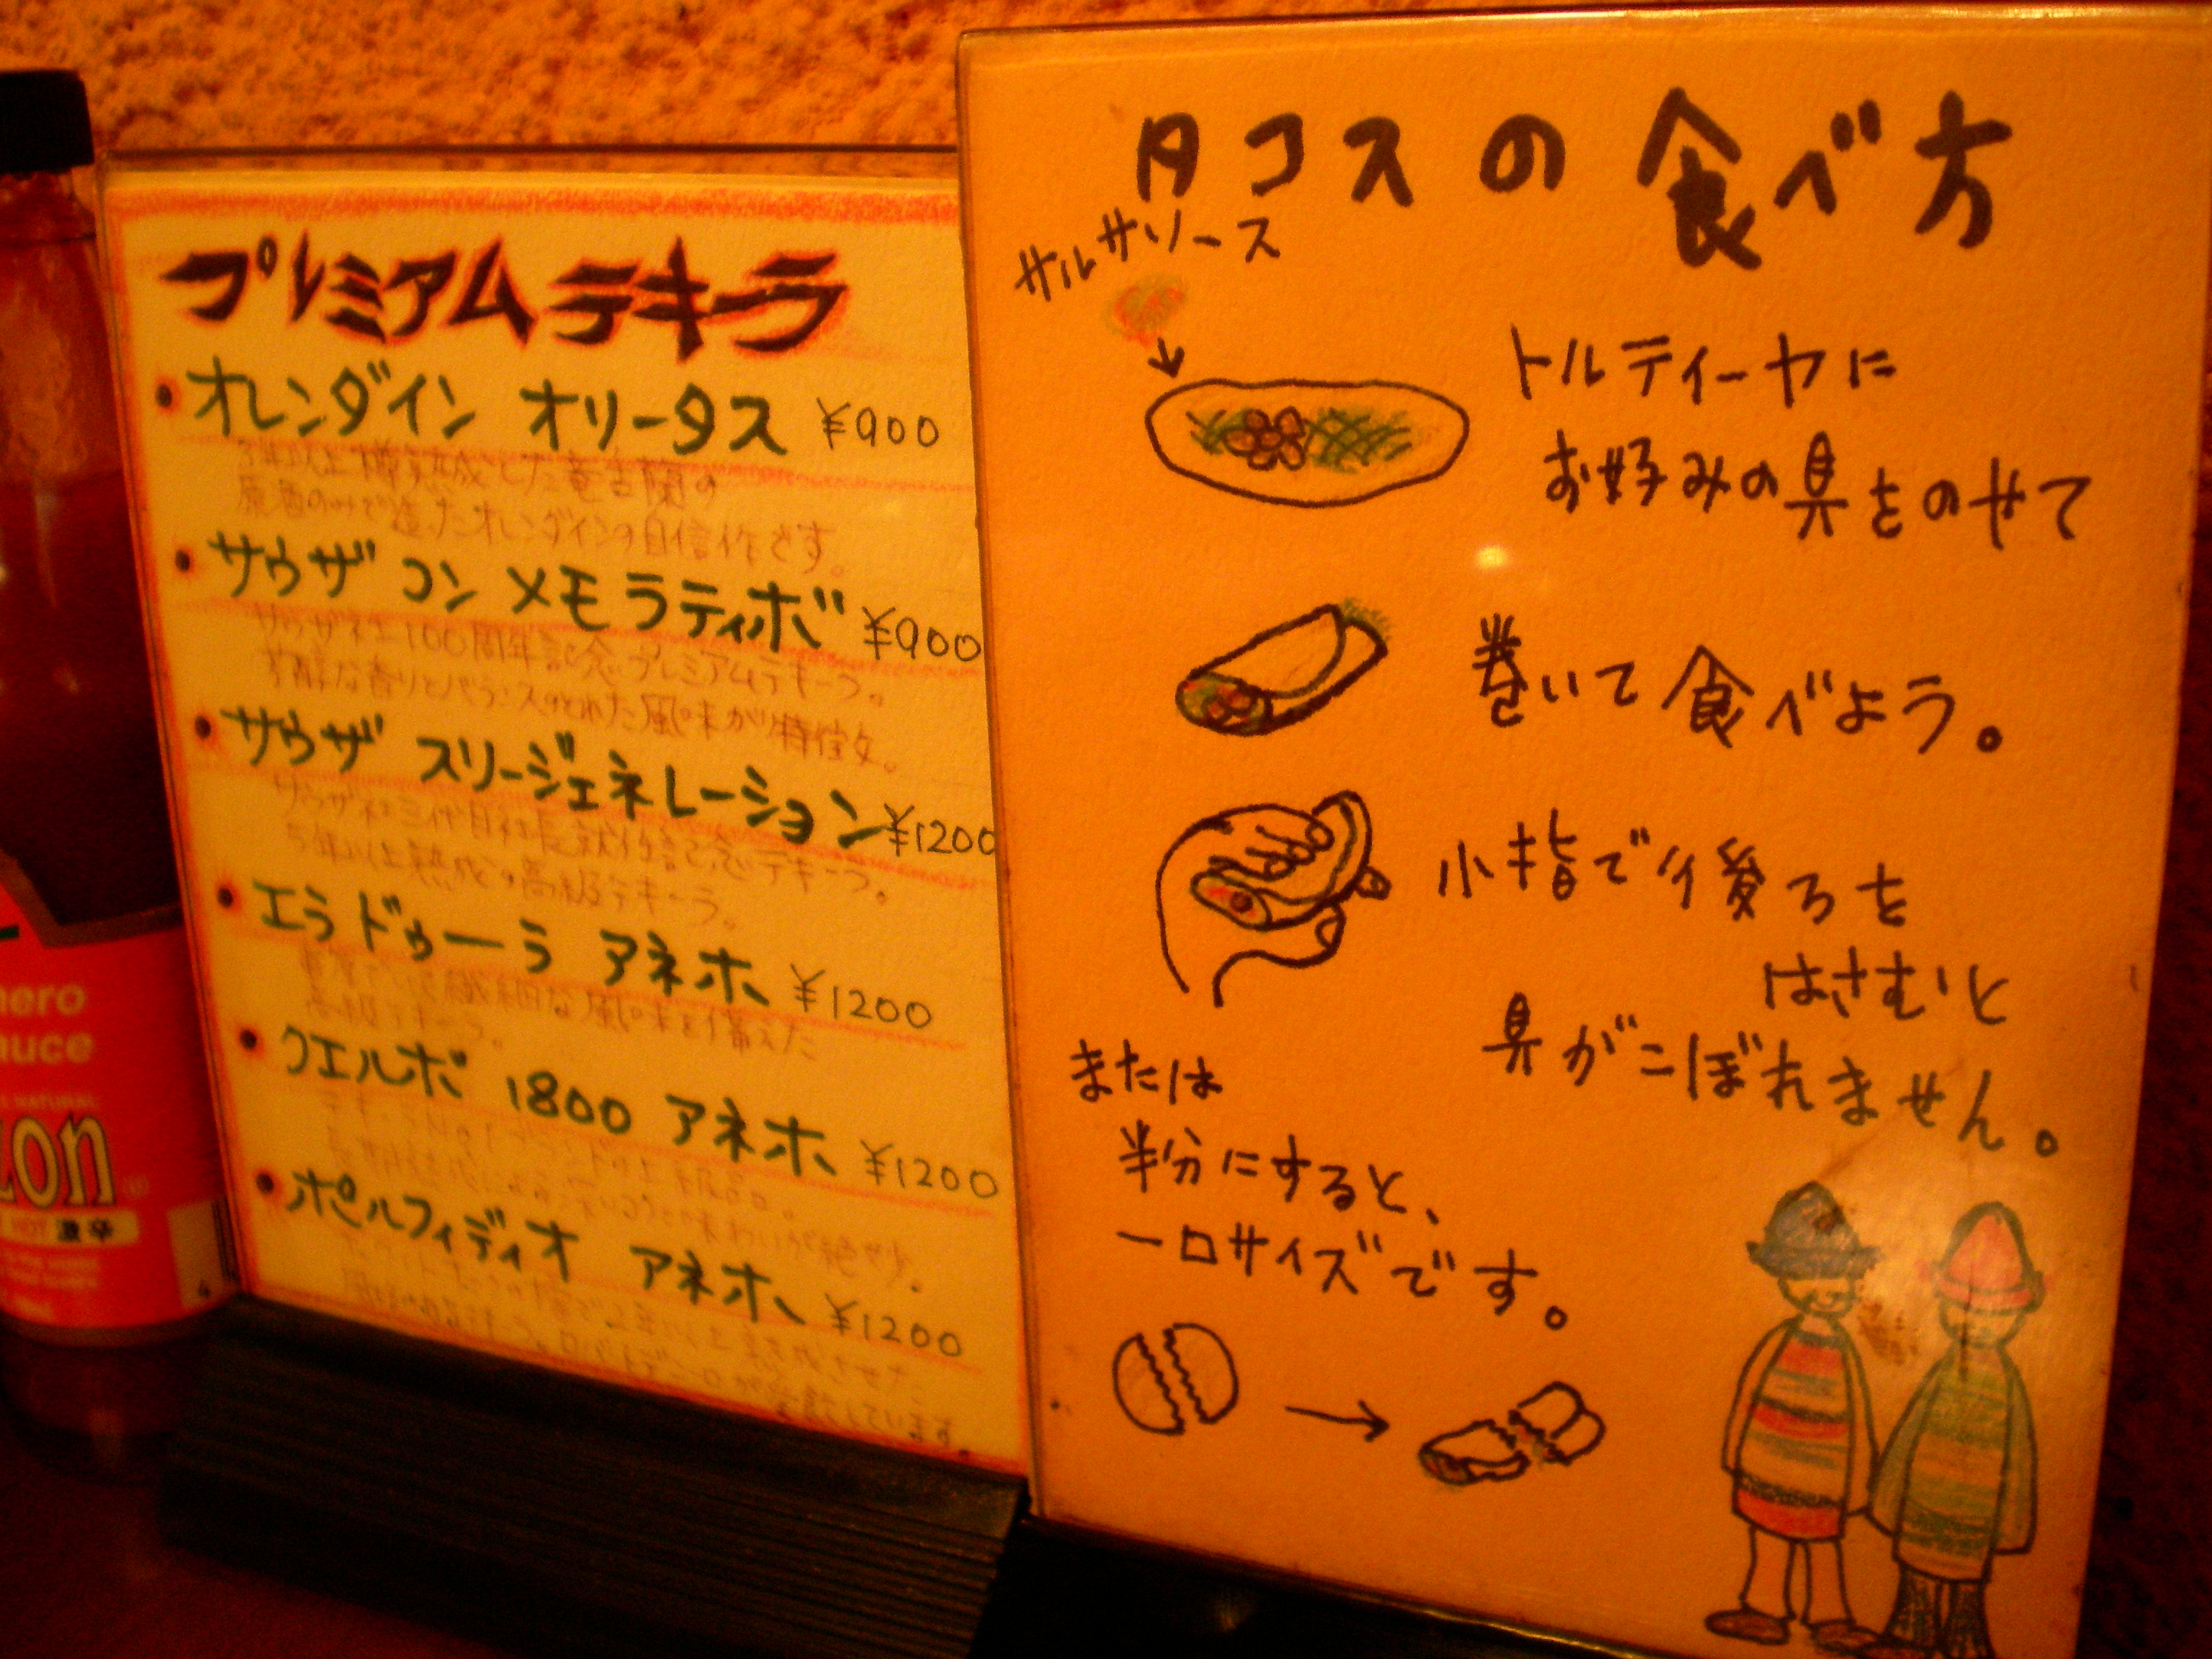 プレミアムテキーラ
・オレンダイン オリータス ¥900
3年以上樽熟成した竜舌蘭の
原酒のみで造ったオレンダインの自信作です。
・サウザ コンメモラティボ ¥900
サウザ社100周年記念プレミアムテキーラ。
芳醇な香りとバランスのとれた風味が特徴。
・サウザ スリージェネレーション ¥1200
サウザ社三代目社長就任記念テキーラ。
5年以上熟成の高級テキーラ。
・エラドゥーラ アネホ ¥1200
繊細な風味を備えた
高級テキーラ。
・クエルボ 1800 アネホ ¥1200
・ポルフィディオ アネホ ¥1200
タコスの食べ方
サルサソース
トルティーヤに
お好みの具をのせて
巻いて食べよう。
小指で後ろを
はさむと
具がこぼれません。
または
半分にすると、
一口サイズです。
nero
auce
NATURAL
zon
HOT 激辛
4